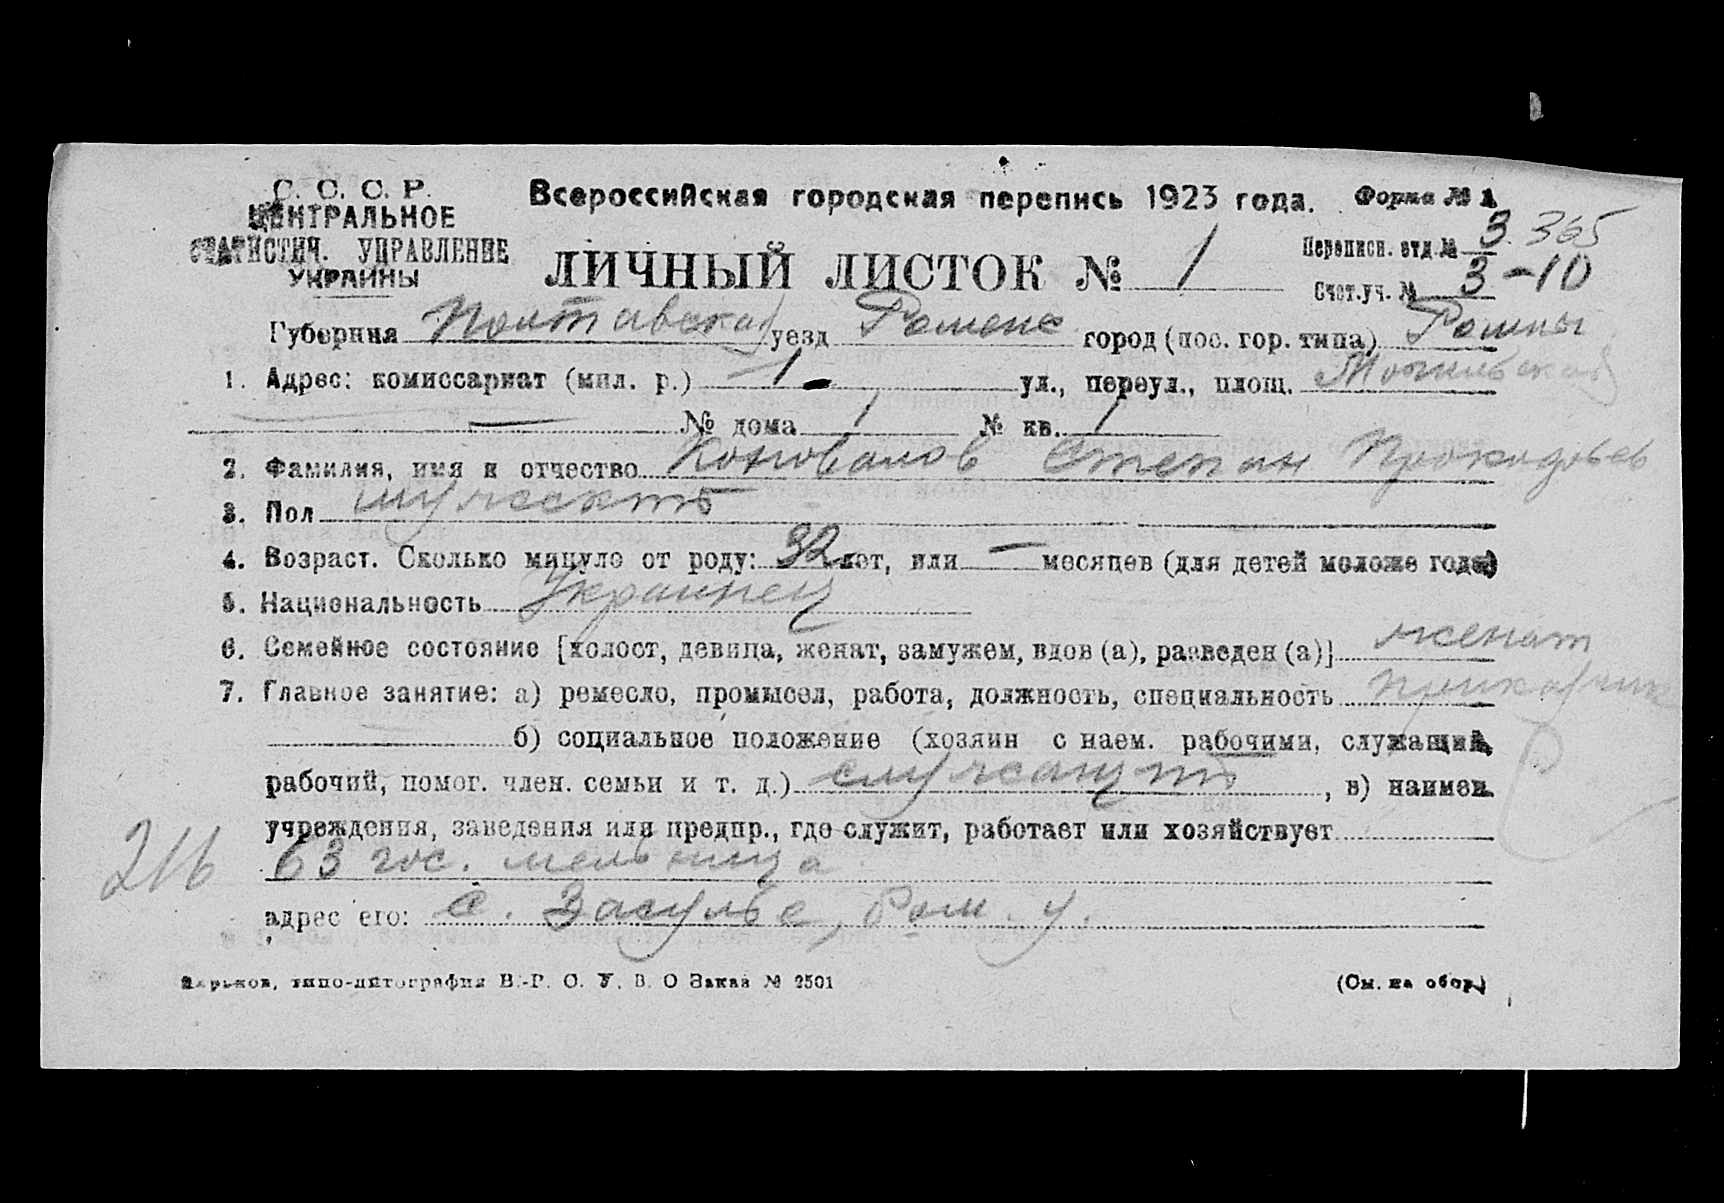 С. С. С. Р.
ЦЕНТРАЛЬНОЕ
СТАТИСТИЧ. УПРАВЛЕНИЕ
УКРАИНЫ
Всероссийская городская перепись 1923 года.
Форма № 1
ЛИЧНЫЙ ЛИСТОК № 1
Переписн. отд. № 3. 365
Счет. уч. № 3-10
Губерния Полтавская уезд Роменс город (пос. гор. типа) Ромны
1. Адрес: комиссариат (мил. р.) 1 ул., переул., площ.
№ дома 1 № кв. 1
2. Фамилия, имя и отчество Коновалов Степан
3. Пол мужской
4. Возраст. Сколько минуло от роду: 32 лет, или — месяцев (для детей моложе года)
5. Национальность Украинец
6. Семейное состояние [холост, девица, женат, замужем, вдов (а), разведен (а)] женат
7. Главное занятие: а) ремесло, промысел, работа, должность, специальность приказчик
б) социальное положение (хозяин с наем. рабочими, служащий,
рабочий, помог. член. семьи и т. д.) служащий, в) наимен.
учреждения, заведения или предпр., где служит, работает или хозяйствует
63 гос. мельница
216
адрес его: с. Засулье, Ром. у.
Харьков, типо-литография В.-Р. С. У. В. О Заказ № 2501
(См. на обор.)